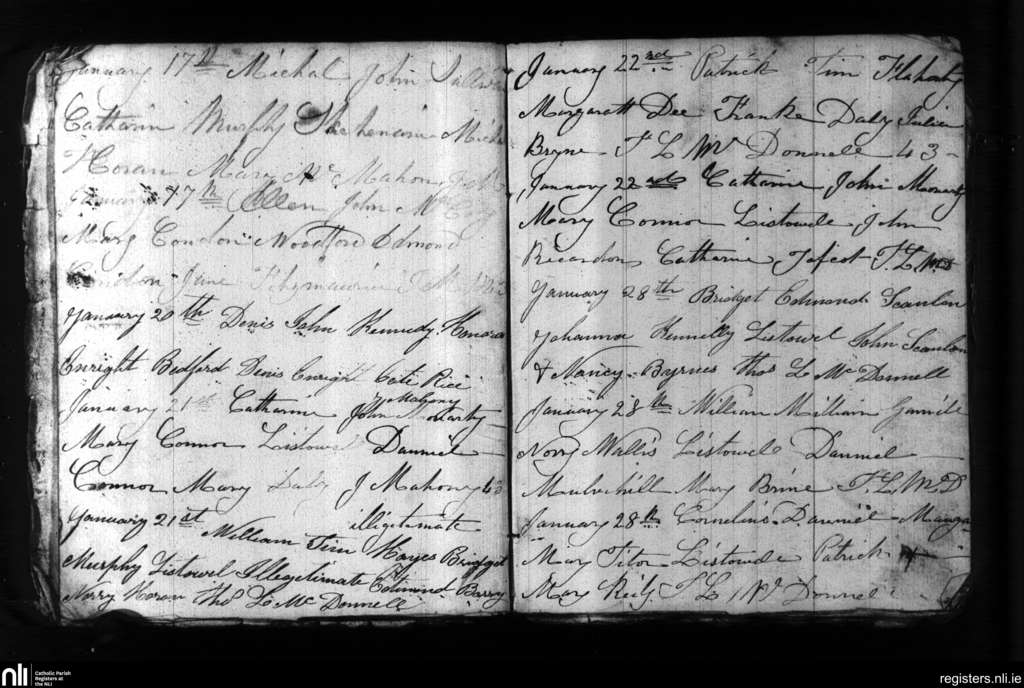 January 17th Michal John Sulliva
Catharin Murphy Michl
Horan Mary Mc Mahon
January 17th Ellen John Mc
Mary Condon Woodford Edmond
Condon Jane Fitzmaurice
January 20th Denis John Kennedy Honora
Enright Bedford Denis Enright Cate Rice
January 21st Catharine John Moriarty
J Mahony
Mary Connor Listowel Danniel
Connor Mary Daly J Mahony 43
January 21st illigitimate
William Tim Hayes Bridget
Murphy Listowel Illegitimate Edmond Barry
Norry Horan Thos L Mc Donnell
January 22nd Patrick Tim Flaherty
Margarett Dee Franke Daly Julia
Bryne T L Mc Donnell 43
January 22nd Catharine John Moriarty
Mary Connor Listowele John
Recardon Catharine T L McD
January 28th Bridget Edmond Scanlan
Johanna Kennelly Listowel John Scanlon
& Nancy Byrnes Thos L Mc Donnell
January 28th William William
Norry Wallis Listowel Danniel
Mulvihill Mary Brine T. L. Mc D
January 28th Cornelius Danniel Manga
Mary Listowele Patrick
Mary T L Mc Donnell
nli
Catholic Parish
Registers at
the NLI
registers.nli.ie